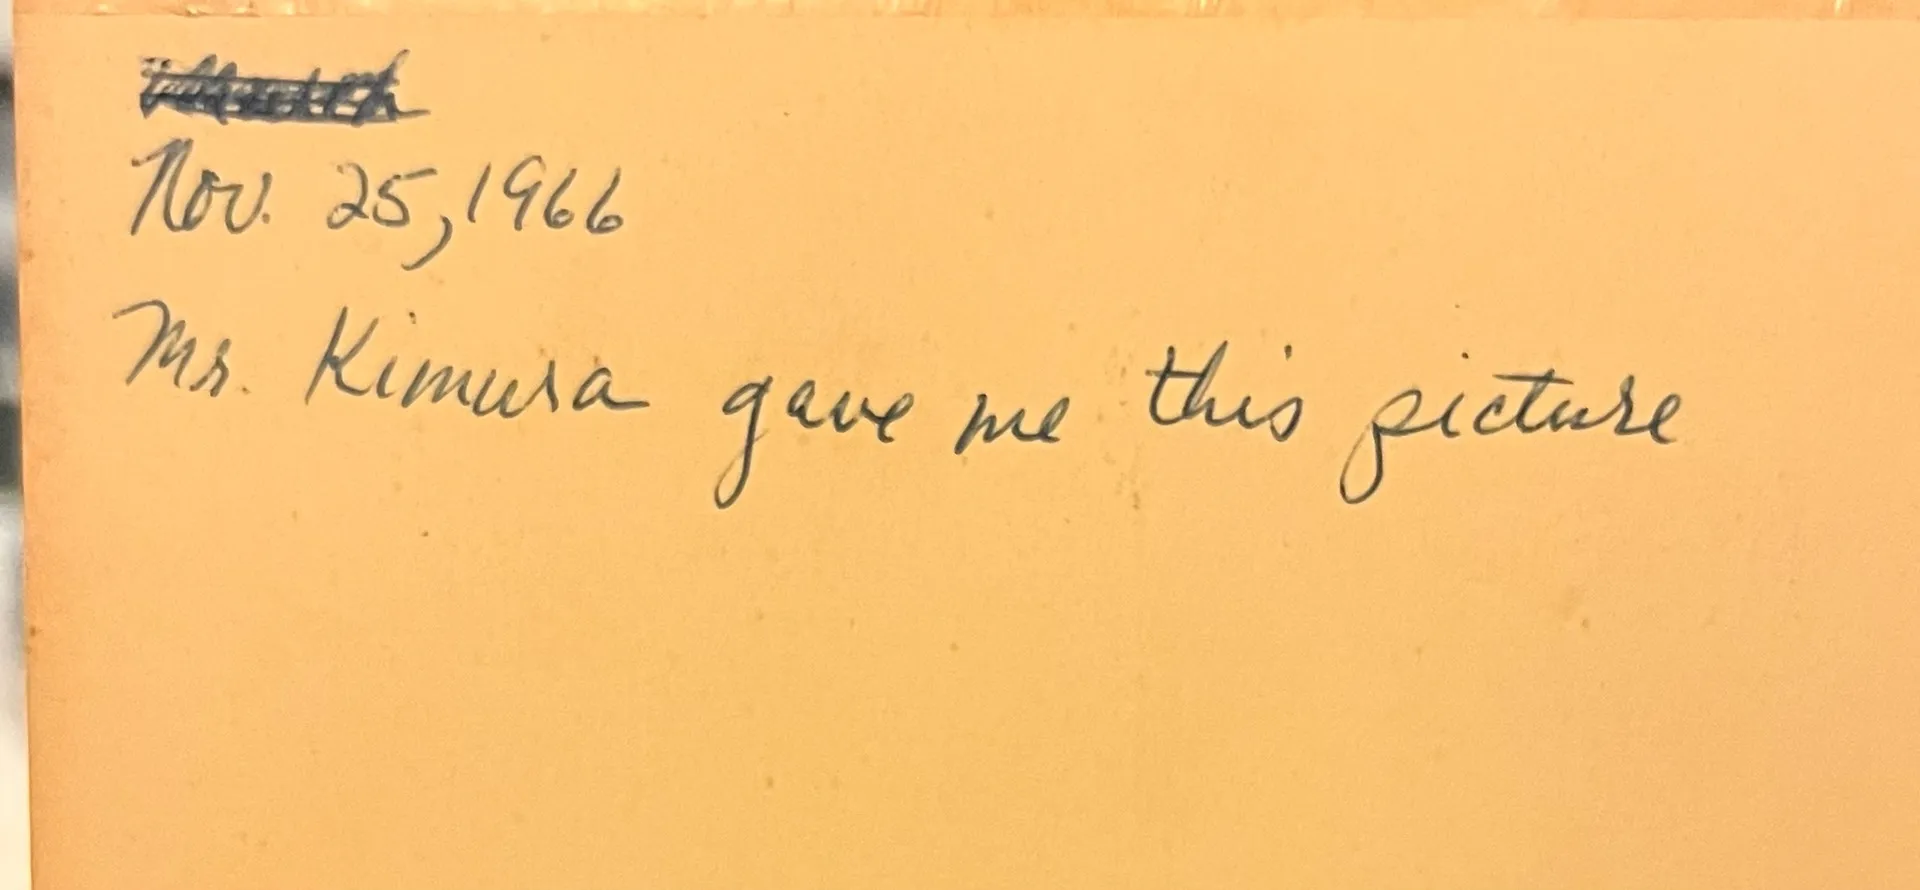 Nov. 25, 1966
Mr. Kimura gave me this picture